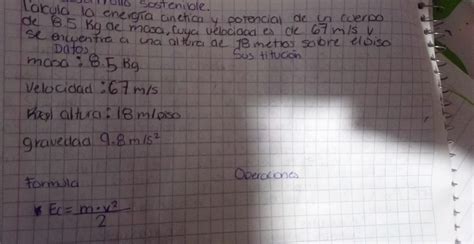 sostenible
Calcula la energia cinetica y potencial de un cuerpo
de 8.5 Kg de masa, cuya velocidad es de 67 m/s y
se encuentra a una altura de 18 metros sobre el piso
Datos Sustitución
masa: 8.5 Kg
Velocidad: 67 m/s
altura: 18 m/piso
gravedad 9.8 m/s²
Formula Operaciones
Ec = m · v²
2